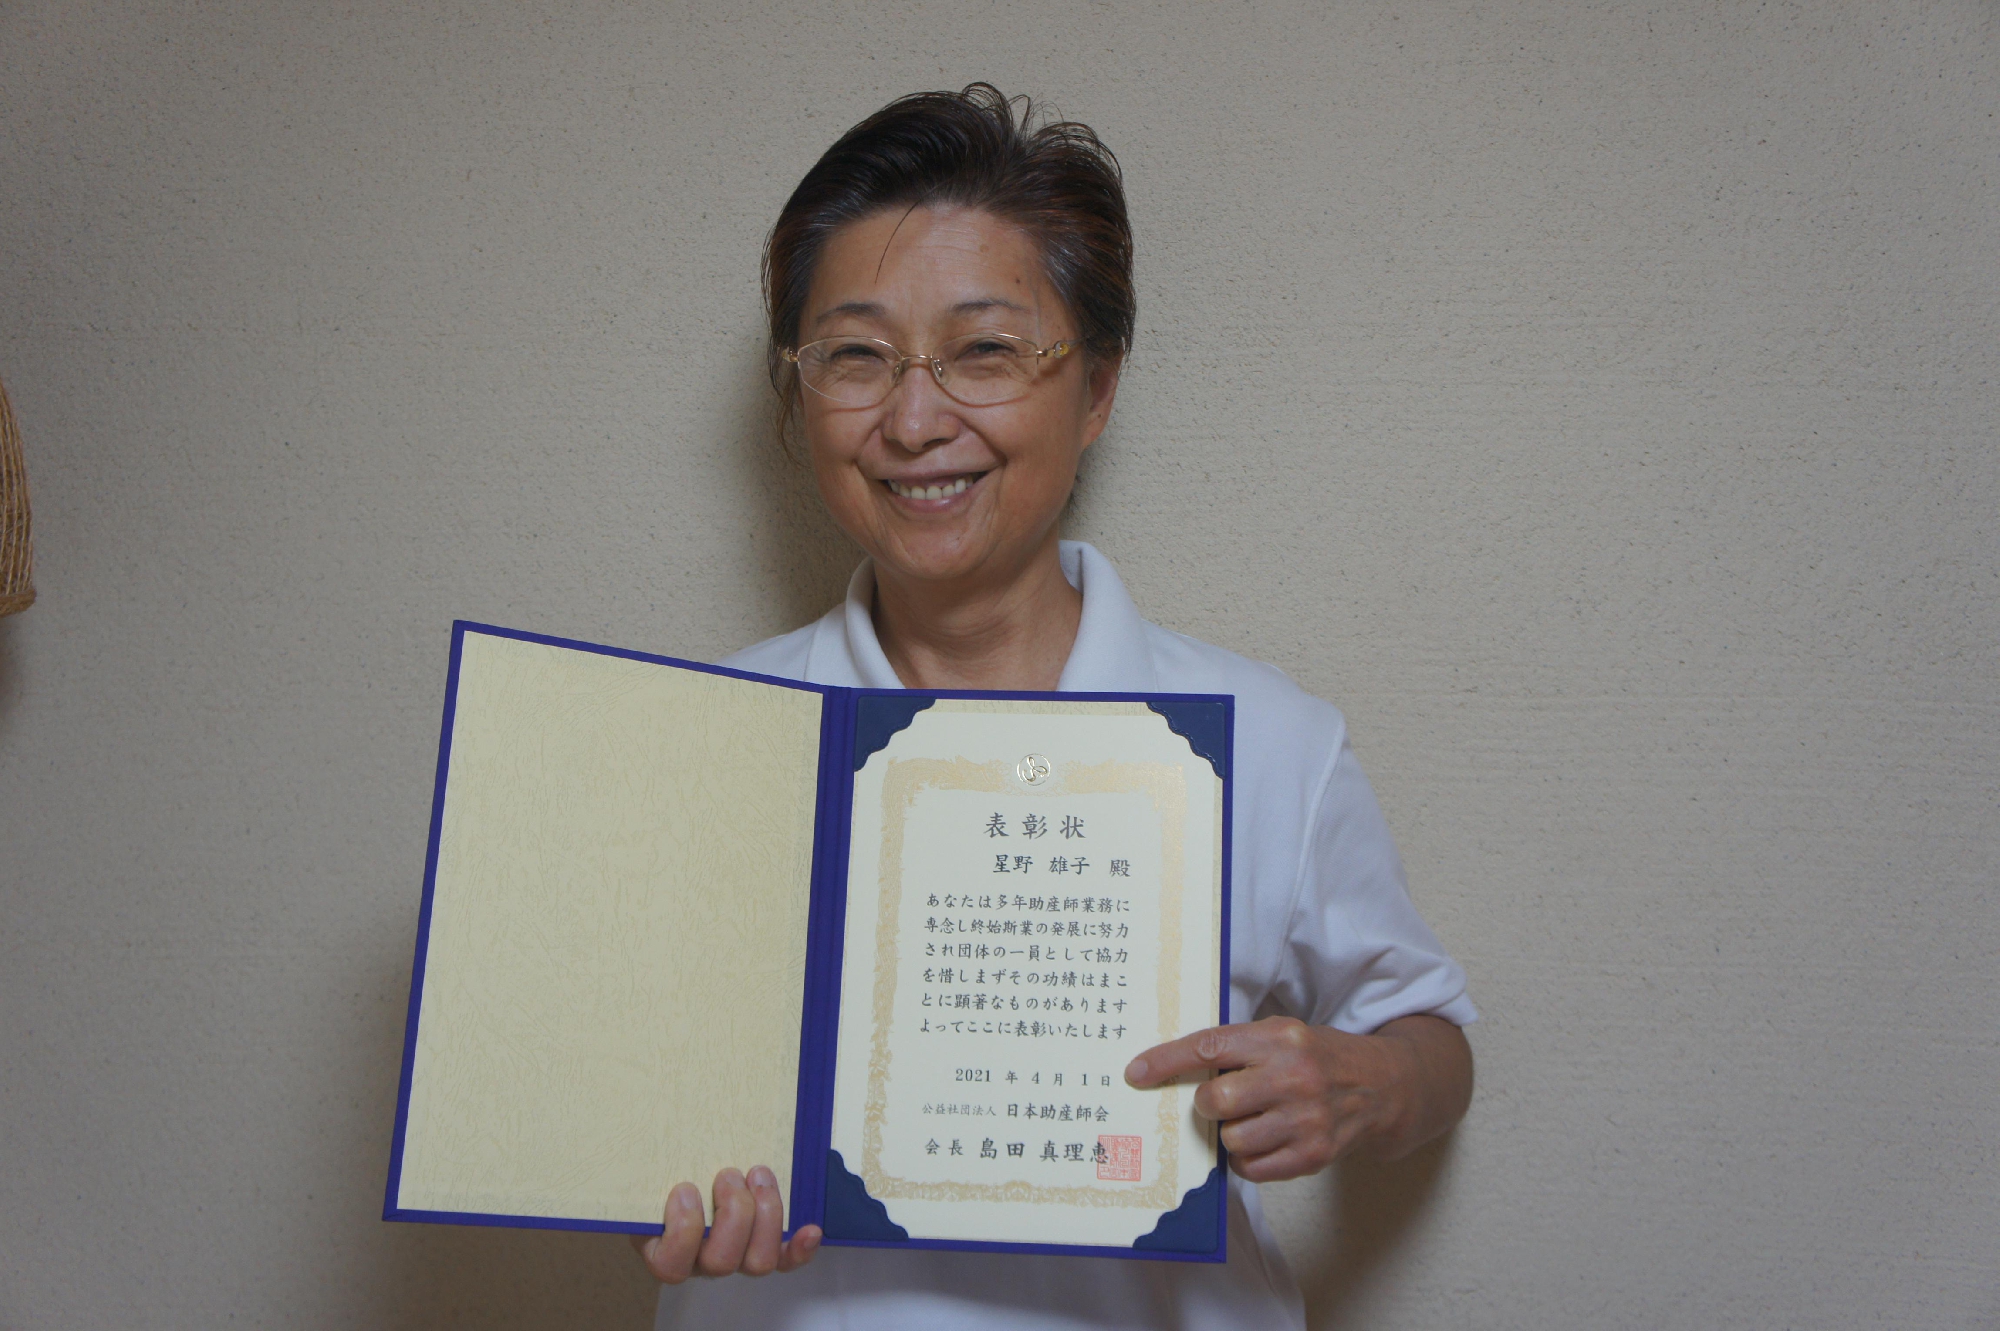 表彰状
星野 雄子 殿
あなたは多年助産師業務に
専念し終始斯業の発展に努力
され団体の一員として協力
を惜しまずその功績はまこ
とに顕著なものがあります
よってここに表彰いたします
2021 年 4 月 1 日
公益社団法人 日本助産師会
会長 島田 真理恵